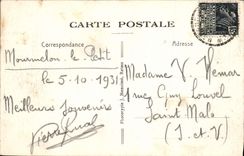 CARTE POSTALE
Correspondance
Adresse
Mourmelon le Petit
le 5-10-1931
Meilleurs Souvenirs
Madame V Hemar
rue Guy Louvel
Saint Malo
(I.et.V)